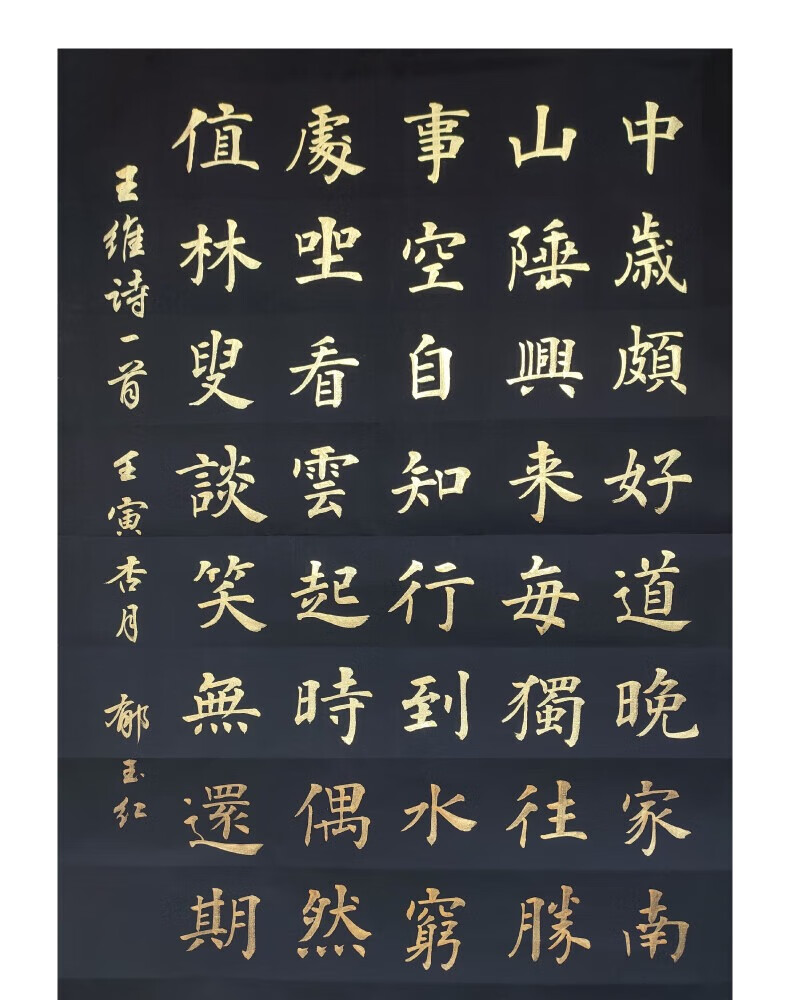 中歲頗好道晚家南
山陲興来每獨往勝
事空自知行到水窮
處坐看雲起時偶然
值林叟談笑無還期
王维诗一首 壬寅杏月 郁玉红